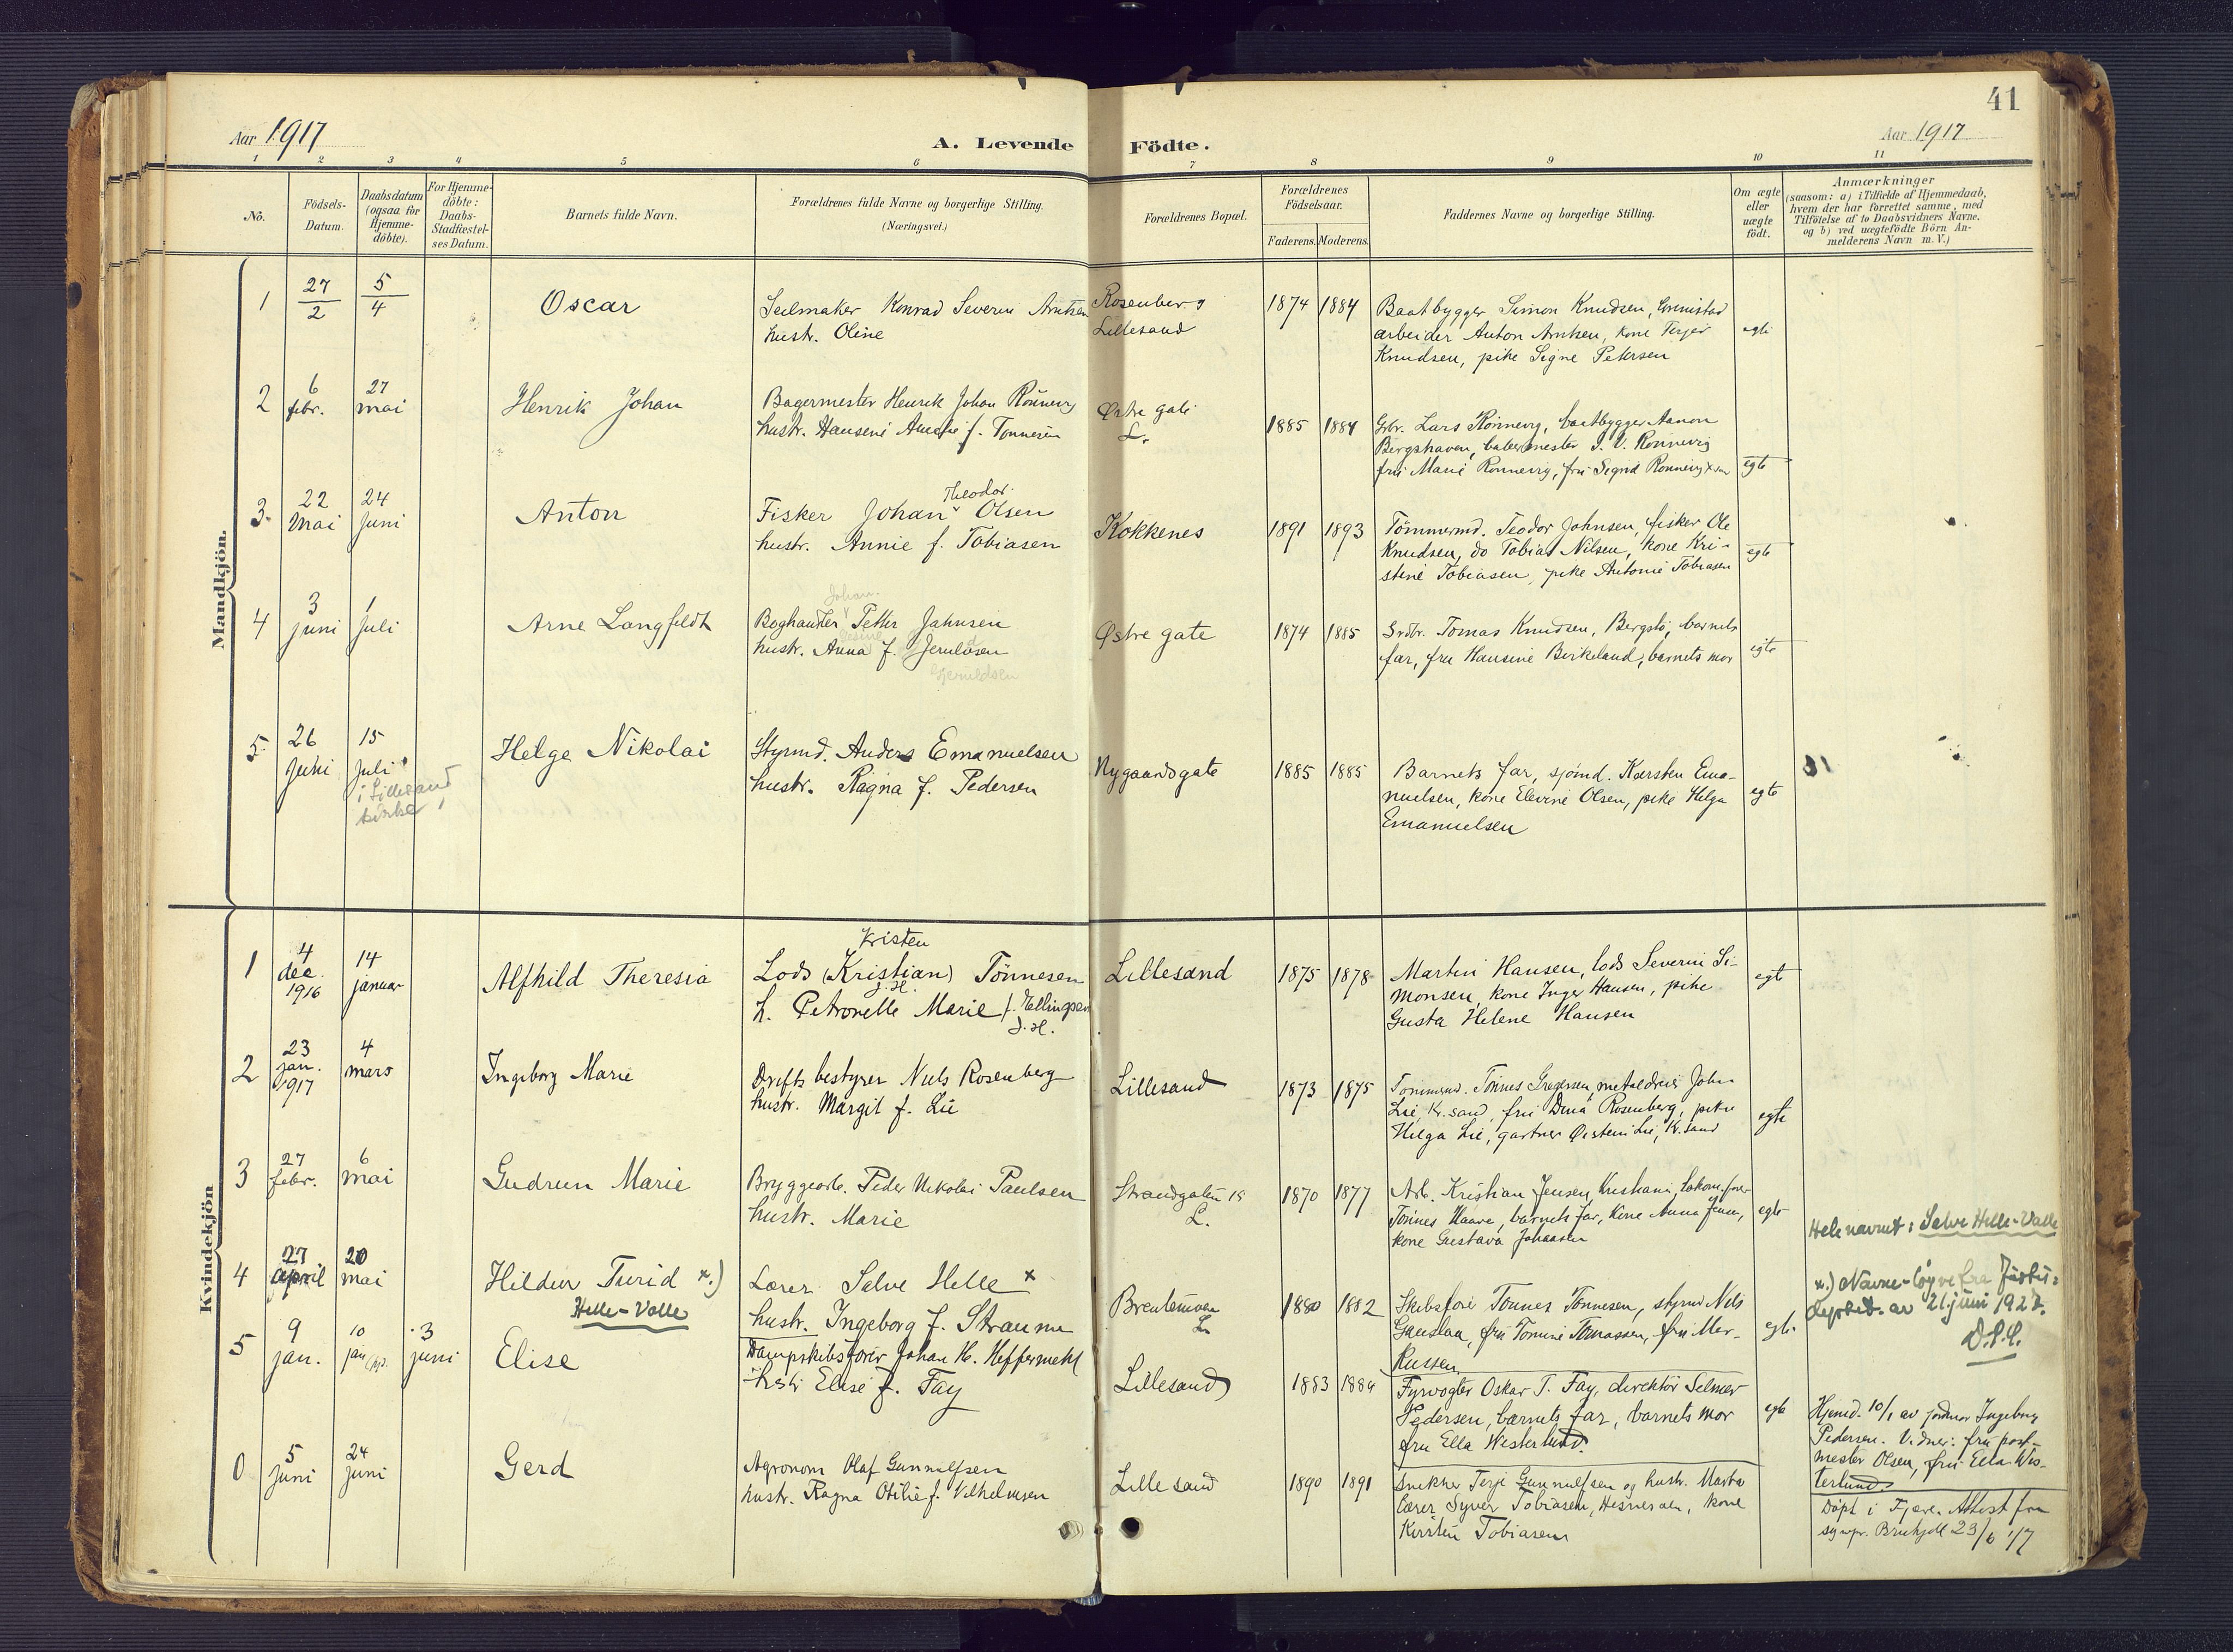 41
Aar 1917
A. Levende Födte.
Aar 1917
1 2 3 4 5 6 7 8 9 10 11
No.
Födsels-
Datum.
Daabsdatum
(ogsaa for
Hjemme-
döbte).
For Hjemme-
döbte:
Daabs-
Stadfæstel-
ses Datum.
Barnets fulde Navn.
Forældrenes fulde Navne og borgerlige Stilling.
(Næringsvei.)
Forældrenes Bopæl.
Forældrenes
Födselsaar.
Faderens. Moderens.
Faddernes Navne og borgerlige Stilling.
Om ægte
eller
uægte
födt.
Anmærkninger
(saasom: a) i Tilfælde af Hjemmedaab,
hvem der har forrettet samme, med
Tilföielse af to Daabsvidners Navne.
og b) ved uægtefödte Börn An-
melderens Navn m. V.)
Mandkjön.
1 27/2 5/4 Oscar
Seilmaker Konrad Severin Arntsen
hustr. Oline
Rosenberg
Lillesand
1874 1884
Baatbygger Simon Knudsen, Grimstad
arbeider Anton Arntsen, kone Terjer
Knudsen, pike Signe Petersen
egte
2 6 febr. 27 mai Henrik Johan
Bagermester Henrik Johan Rönnevig
hustr. Hansine Amalie f. Tönnesen
Østre gate
L.
1885 1884
Grbr. Lars Rönnevig, baatbygger Aanon
Bergshaven, bakermester S. V. Rönnevig
fru Marie Rönnevig, fru Signe Rönnevig
egte
3 22 Mai 24 Juni Anton
Theodor
Fisker Johan Olsen
hustr. Annie f. Tobiasen
Kokkenes
1891 1893
Tömmermd. Teodor Johnsen, fisker Ole
Knudsen, do Tobias Nilsen, kone Kri-
stine Tobiasen, pike Antonie Tobiasen
egte
4 3 juni 1 juli Arne Langfeldt
Johan
Boghandler Petter Jahnsen
hustr. Anna f. Jeruldsen
Gjeruldsen
Østre gate
1874 1885
Grdbr. Tomas Knudsen, Bergstö, barnets
far, fru Hansine Birkeland, barnets mor
egte
5 26 Juni 15 Juli
i Lillesand
kirke
Helge Nikolai
Styrmd. Anders Emanuelsen
hustr. Ragna f. Pedersen
Nygaardsgate
1885 1885
Barnets far, sjömd. Karsten Ema-
nuelsen, kone Elevine Olsen, pike Helga
Emanuelsen
egte
Kvindekjön
1 4 dec. 1916 14 januar Alfhild Theresia
Kristen
Lods (Kristian) Tönnesen
J. H.
h. Petronelle Marie f. Ellingsen
J. H.
Lillesand
1875 1878
Martin Hansen, lods Severin Si-
monsen, kone Inger Hansen, pike
Gusta Helene Hansen
egt
2 23 jan. 1917 4 mars Ingeborg Marie
Driftsbestyrer Niels Rosenberg
hustr. Margit f. Lie
Lillesand
1873 1875
Tömmermd. Tönnes Gregersen, metaldreier John
Lie, Kr.sand, fru Dina Rosenberg, pike
Helga Lie, gartner Øistein Lie, Kr.sand
egte
3 27 febr. 6 mai Gudrun Marie
Bryggearb. Peder Nikolai Paulsen
hustr. Marie
Strandgaten 18
L.
1870 1877
Arb. Kristian Jensen, Kristiania, lokom.förer
Tönnes Haave, barnets far, kone Anna Jensen,
kone Gustava Johansen
egte
4 27 april 20 mai Hildur Turid x.)
Helle-Valle
Lærer Salve Helle x
hustr. Ingeborg f. Straume
L.
1880 1882
Skibsförer Tönnes Tönnesen, styrmd Nils
Gauslaa, fru Tomine Tomassen, fru Mar-
Russen
egte
Hele navnet: Salve Helle-Valle
x.) Navne-løyve fra Justis-
dept. av 21. juni 1927.
5 9 jan. 10 jan. 3 juni Elise
Dampskibsförer Johan H. Heffermehl
hstr Elise f. Fay
Lillesand
1883 1884
Fyrvogter Oskar T. Fay, direktör Selmer
Pedersen, barnets far, barnets mor
fru Ella Westerlund.
egte
Hjemd. 10/1 av jordmor Ingeborg
Pedersen. Vidner: fru post-
mester Olsen, fru Ella Wes-
terlund
0 5 juni 24 juni Gerd
Agronom Olaf Gunnulfsen
hustr. Ragna Otilie f. Vilhelmsen
Lillesand
1890 1891
Snekker Terje Gunnulfsen og hustr. Marta
Lærer Syver Tobiasen, Hesnesøen, kone
Kirstin Tobiasen
Döpt i Fjære. Attest fra
sognepr. 23/6 '17